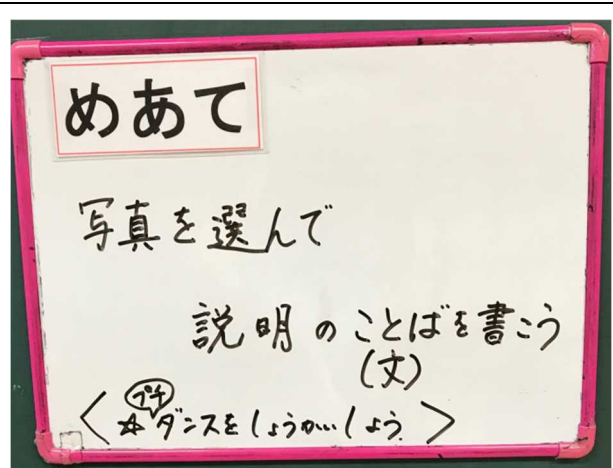 めあて
写真を選んで
説明のことばを書こう
(文)
プチ
〈☆ダンスをしょうかいしよう。〉